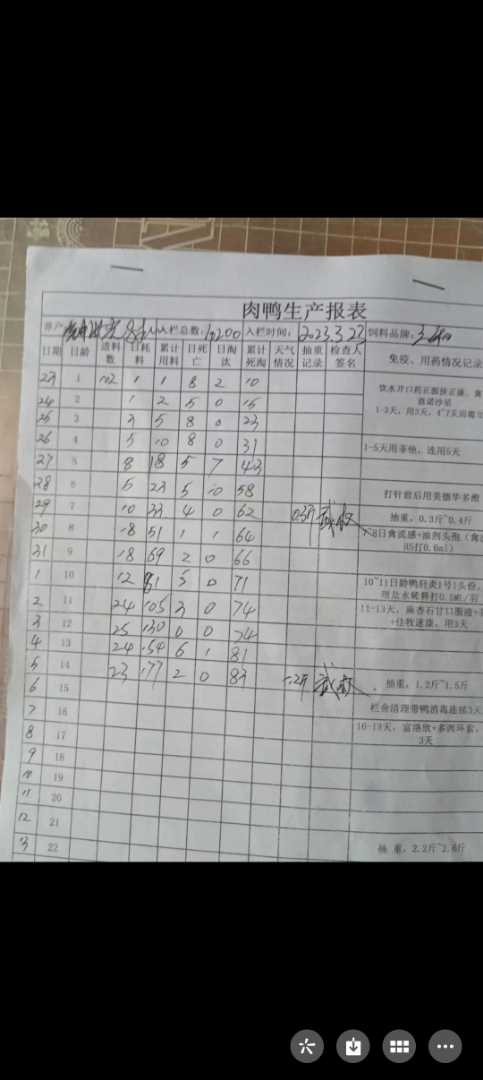 肉鸭生产报表
养户 入栏总数: 10200 入栏时间: 2023.3.23 饲料品牌:
日期 日龄 进料数 日耗料 累计用料 日死亡 日淘汰 累计死淘 天气情况 抽重记录 检查人签名 免疫、用药情况记录
23 1 102 1 1 8 2 10
24 2 1 2 5 0 15
1-3天,用3天,4~7天
25 3 3 5 8 0 23
26 4 5 10 8 0 31 1-5天用 连用5天
27 5 8 18 5 7 43
28 6 5 23 5 10 58 打针前后用美德华多维
29 7 10 33 4 0 62 0.3斤 抽重,0.3斤~0.4斤
30 8 18 51 1 1 64 7-8日禽流感+油剂头孢
31 9 18 69 2 0 66
1 10 12 81 5 0 71 10~11日龄鸭肝炎1号1头份,
2 11 24 105 3 0 74 11-13天,麻杏石甘口服液+
3 12 25 130 0 0 74 用3天
4 13 24 154 6 1 81
5 14 23 177 2 0 83 1.2斤
6 15 抽重,1.2斤~1.5斤
7 16 栏舍清理带鸭消毒连续3天
8 17 3天
9 18
10 19
11 20
12 21
13 22 抽重,2.2斤~2.6斤